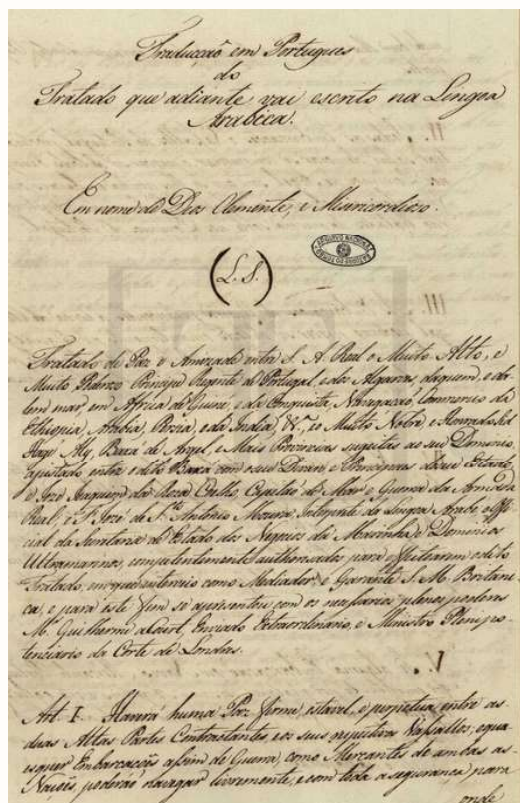 Traducçaõ em Portugues
do
Tratado que adiante vai escrito na Lingoa
Arabica.
Em nome de Deos Clemente, e Misericordiozo.
(L. S.)
ARQUIVO NACIONAL
TORRE DO TOMBO
Tratado de Paz e Amizade entre S. A. Real o Muito Alto, e
Muito Poderozo Principe Regente de Portugal, e dos Algarves, daquem, e da-
lem mar, em Africa de Guiné, e da Conquista, Navegaçaõ Commercio da
Ethiopia, Arabia, Persia, e da India, &ª., e o Muito Nobre, e Honrado Sid
Hage Aly, Baxá de Argel, e Mais Provincias sugeitas ao seu Dominio,
ajustado entre o dito Baxá com o seu Divan, e Principaes do seu Estado,
e Jozé Joaquim da Roza Coelho, Capitaõ de Mar e Guerra da Armada
Real, e Fr. Jozé de Sto. Antonio Moura, Interprete da Lingoa Arabe, e Offi-
cial da Secretaria de Estado dos Negocios da Marinha, e Dominios
Ultramarinos, competentemente authorizados para effeituarem o dito
Tratado, em que interveio como Mediador, e Garante S. M. Britani-
ca, e para este fim se aprezentou com os necessarios plenos poderes
Mr. Guilherme aCourt, Enviado Extraordinario, e Ministro Plenipo-
tenciario da Corte de Londres.
I.
Art. I. Haverá huma Paz firme, estavel, e perpetua entre as
duas Altas Partes Contractantes, e os seus respectivos Vassallos, e qua-
esquer Embarcaçoẽs assim de Guerra, como Mercantes de ambas as
Naçoẽs poderaõ navegar livremente, e com toda a segurança para
onde